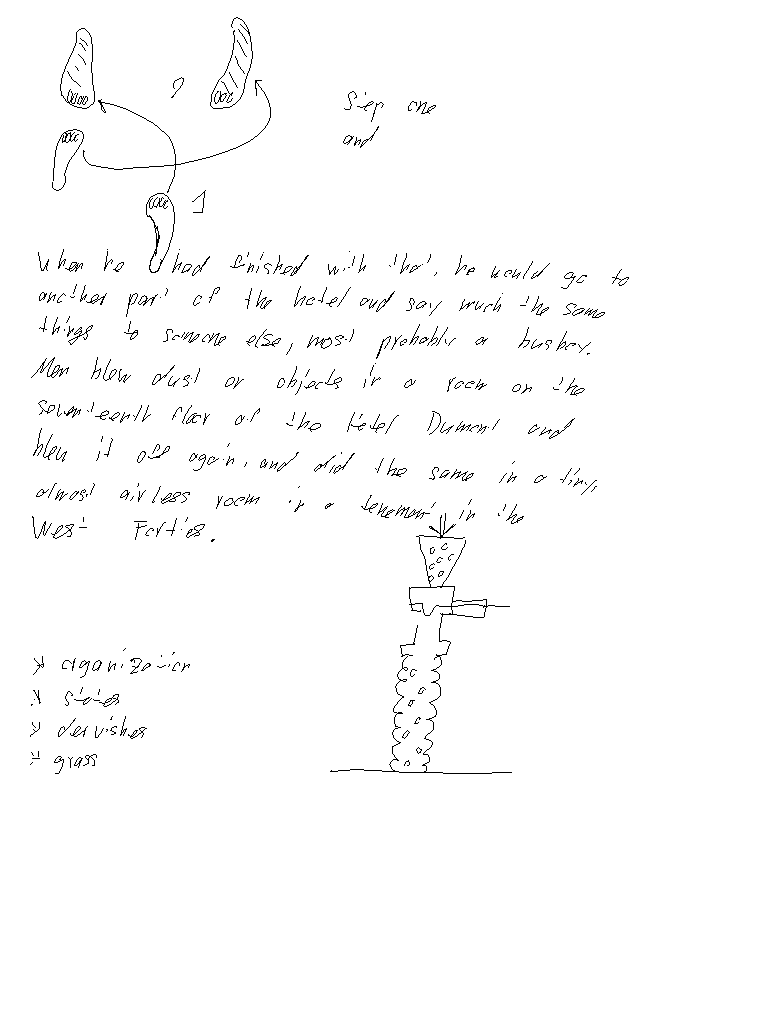 2
Step one
and
1
When he had finished with that, he would go to
another part of the hotel and say much the same
things to someone else, most probably a busboy.
Men blew dust or objects in a room on the
seventeenth floor of the Hotel Dumont and
blew it off again, and did the same in a tiny,
almost airless room in a tenement in the
West Forties.
* organization
* states
* dervishes
* grass